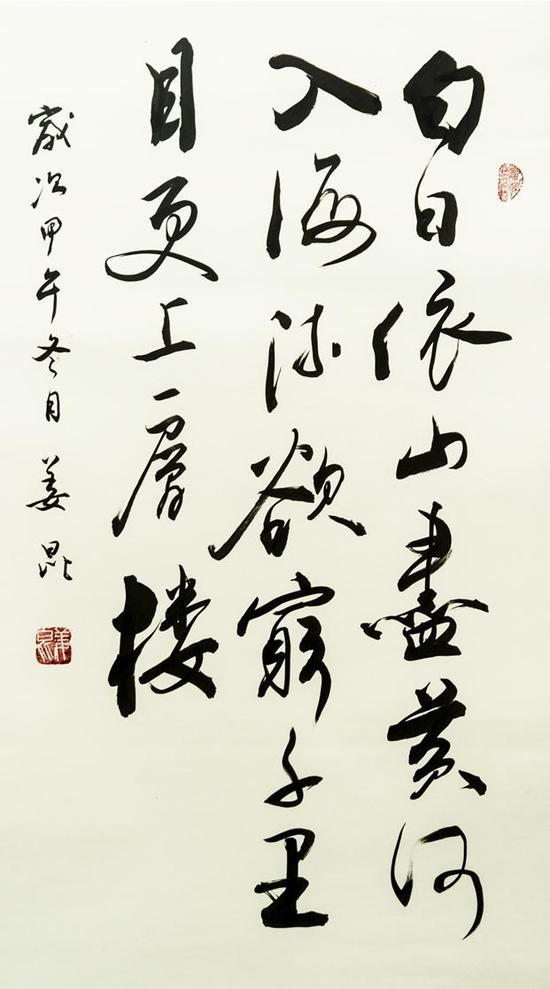 白日依山盡黄河
入海流欲窮千里
目更上一層楼
歲次甲午冬月姜昆
姜昆